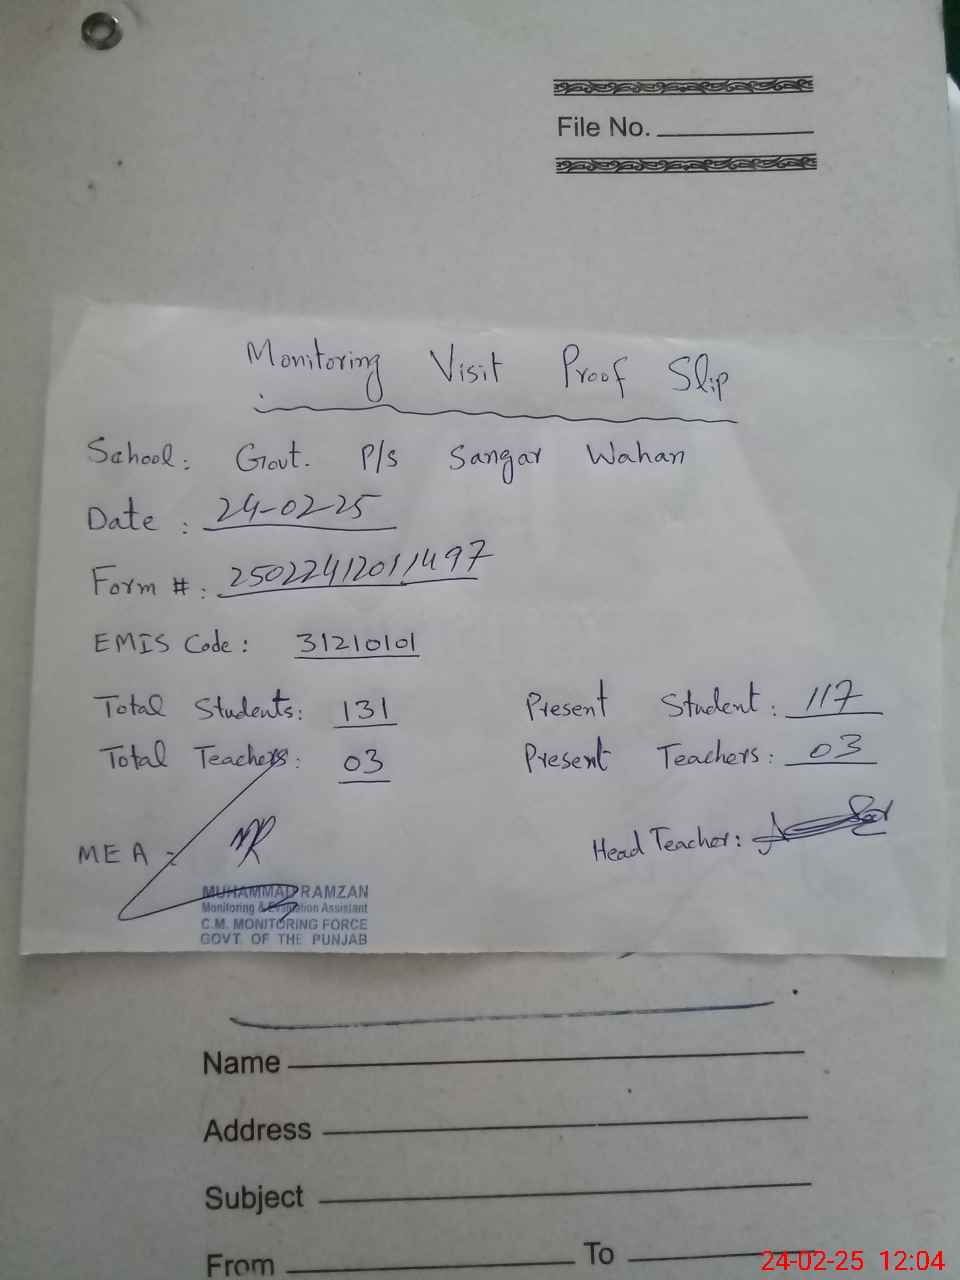 File No.
Monitoring Visit Proof Slip
School: Govt. P/S Sangar Wahan
Date : 24-02-25
Form #: 25022412011497
EMIS Code: 31210101
Total Students: 131 Present Student: 117
Total Teachers: 03 Present Teachers: 03
MEA: Head Teacher:
MUHAMMAD RAMZAN
Monitoring & Evaluation Assistant
C.M. MONITORING FORCE
GOVT. OF THE PUNJAB
Name
Address
Subject
From To
24-02-25 12:04